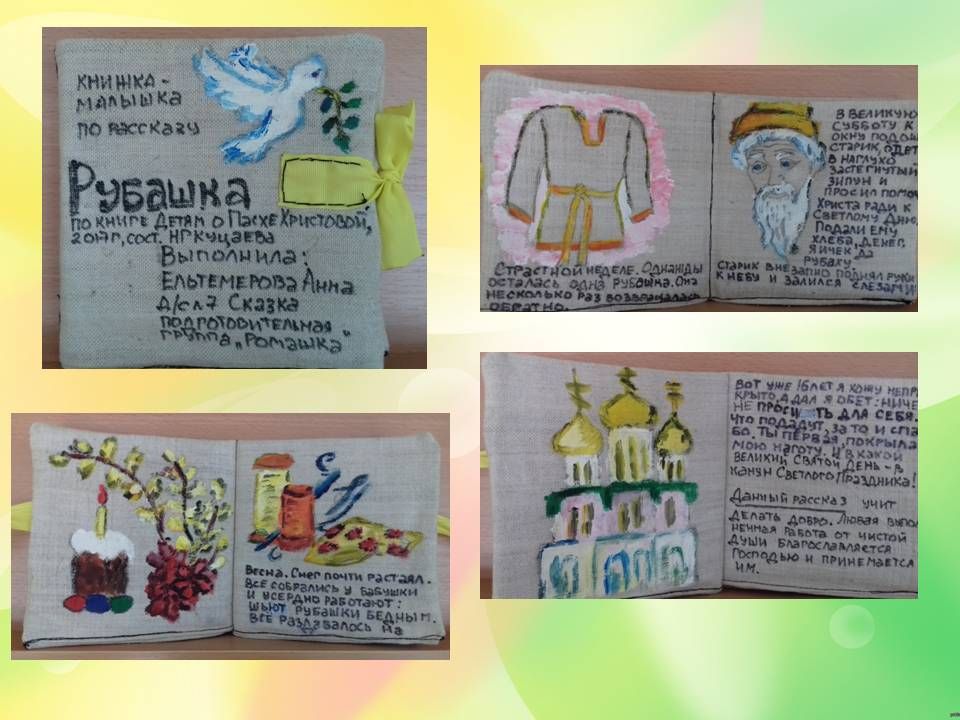 КНИЖКА-
МАЛЫШКА
ПО РАССКАЗУ
РУБАШКА
ПО КНИГЕ ДЕТЯМ О ПАСХЕ ХРИСТОВОЙ,
2017г, СОСТ. Н Г КУЦАЕВА
ВЫПОЛНИЛА:
ЕЛЬТЕМЕРОВА АННА
Д/С Л.7 СКАЗКА
ПОДГОТОВИТЕЛЬНАЯ
ГРУППА „РОМАШКА"
ВЕСНА. СНЕГ ПОЧТИ РАСТАЯЛ.
ВСЕ СОБРАЛИСЬ У БАБУШКИ
И УСЕРДНО РАБОТАЮТ:
ШЬЮТ РУБАШКИ БЕДНЫМ.
ВСЕ РАЗДАВАЛОСЬ НА
СТРАСТНОЙ НЕДЕЛЕ. ОДНАЖДЫ
ОСТАЛАСЬ ОДНА РУБАШКА. ОНА
НЕСКОЛЬКО РАЗ ВОЗВРАЩАЛАСЬ
ОБРАТНО.
В ВЕЛИКУЮ
СУББОТУ К
ОКНУ ПОДОШ
СТАРИК, ОДЕТ
В НАГЛУХО
ЗАСТЕГНУТЫЙ
ЗИПУН И
ПРОСИЛ ПОМОЧ
ХРИСТА РАДИ К
СВЕТЛОМУ ДНЮ.
ПОДАЛИ ЕМУ
ХЛЕБА, ДЕНЕГ,
ЯИЧЕК, ДА
РУБАХУ.
СТАРИК ВНЕЗАПНО ПОДНЯЛ РУКИ
К НЕБУ И ЗАЛИЛСЯ СЛЕЗАМИ
ВОТ УЖЕ 16 ЛЕТ Я ХОЖУ НЕПР
КРЫТО, А ДАЛ Я ОБЕТ: НИЧЕ
НЕ ПРОСИТЬ ДЛЯ СЕБЯ.
ЧТО ПОДАДУТ, ЗА ТО И СПА
БО. ТЫ ПЕРВАЯ, ПОКРЫЛА
МОЮ НАГОТУ. И В КАКОЙ
ВЕЛИКИЙ СВЯТОЙ ДЕНЬ - В
КАНУН СВЕТЛОГО ПРАЗДНИКА!
ДАННЫЙ РАССКАЗ УЧИТ
ДЕЛАТЬ ДОБРО. ЛЮБАЯ ВЫПОЛ
НЕННАЯ РАБОТА ОТ ЧИСТОЙ
ДУШИ БЛАГОСЛАВЛЯЕТСЯ
ГОСПОДЬЮ И ПРИНЕМАЕТСЯ
ИМ.